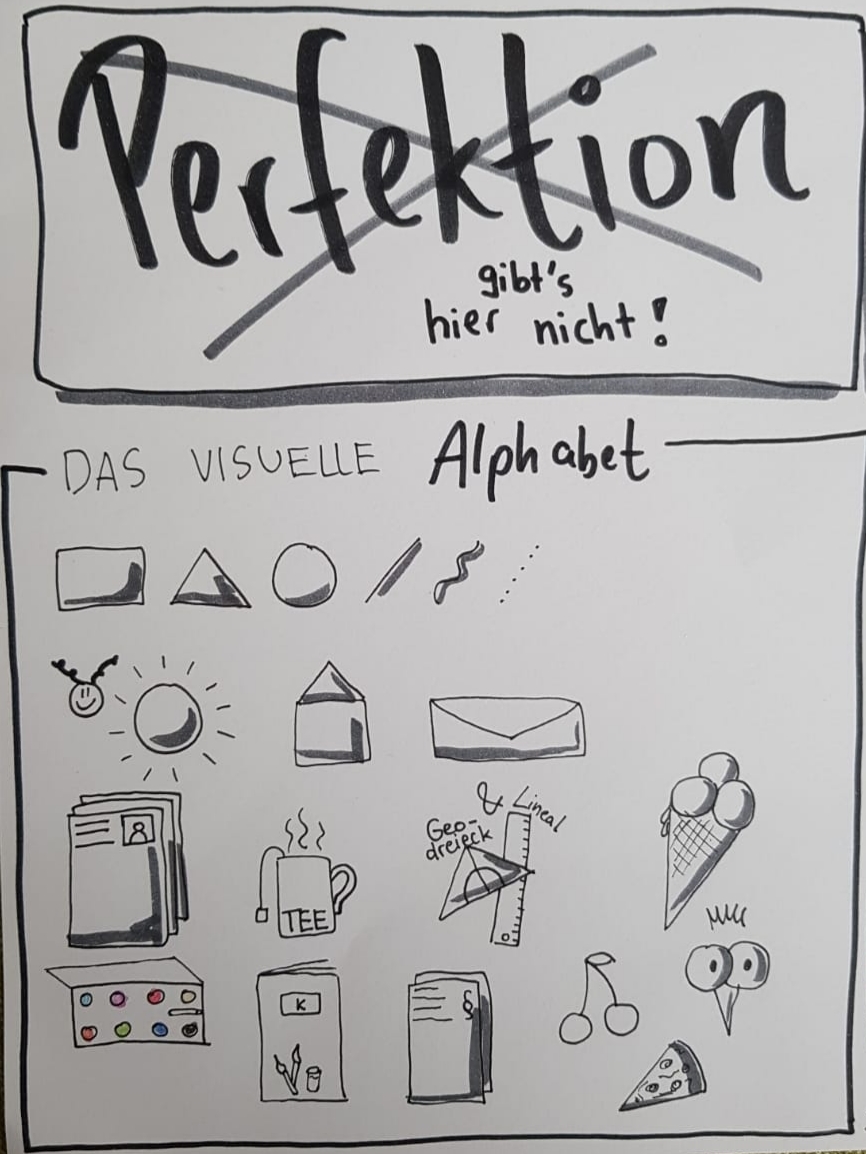 Perfektion
gibt's
hier nicht!
DAS VISUELLE Alphabet
& Lineal
Geo-
dreieck
TEE
K
§